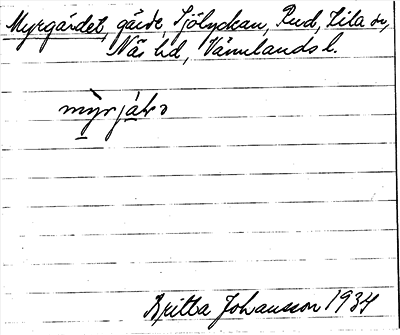 Myrgärdet, gärde, Sjölyckan, Rud, Lilla sn,
Näs hd, Värmlands l.
Britta Johansson 1934